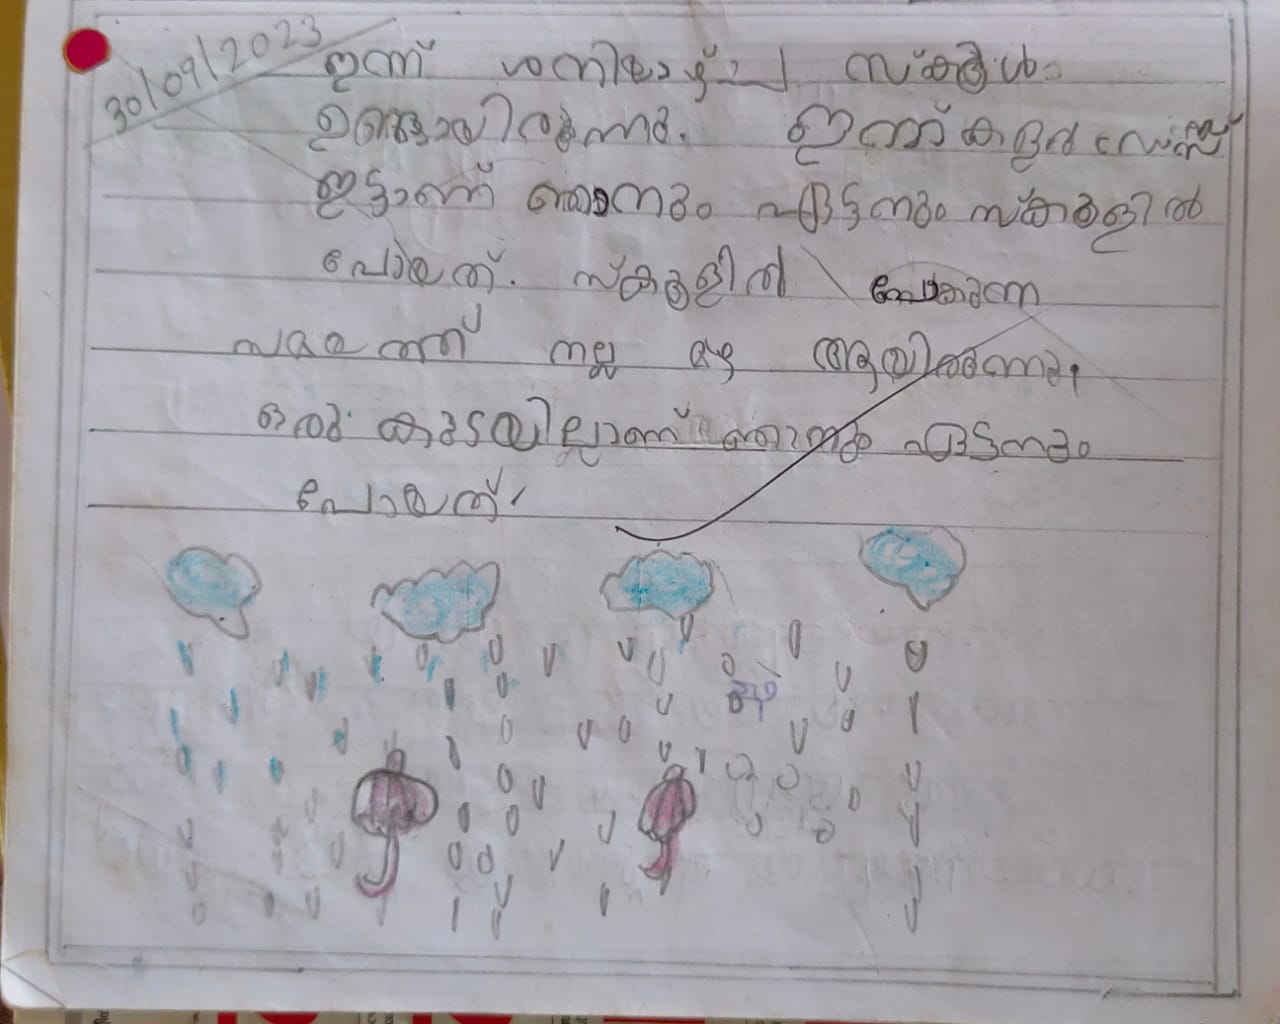 30/09/2023
ഇന്ന് ശനിയാഴ്ച്ച സ്കൂൾ
ഉണ്ടായിരുന്നു. ഇന്ന് കളർ ഡ്രസ്സ്
ഇട്ടാണ് ഞാനും ഏട്ടനും സ്കൂളിൽ
പോയത്. സ്കൂളിൽ പോകുന്ന
സമയത്ത് നല്ല മഴ ആയിരുന്നു.
ഒരു കുടയില്ലാണ് ഞാനും ഏട്ടനും
പോയത്.
മഴ